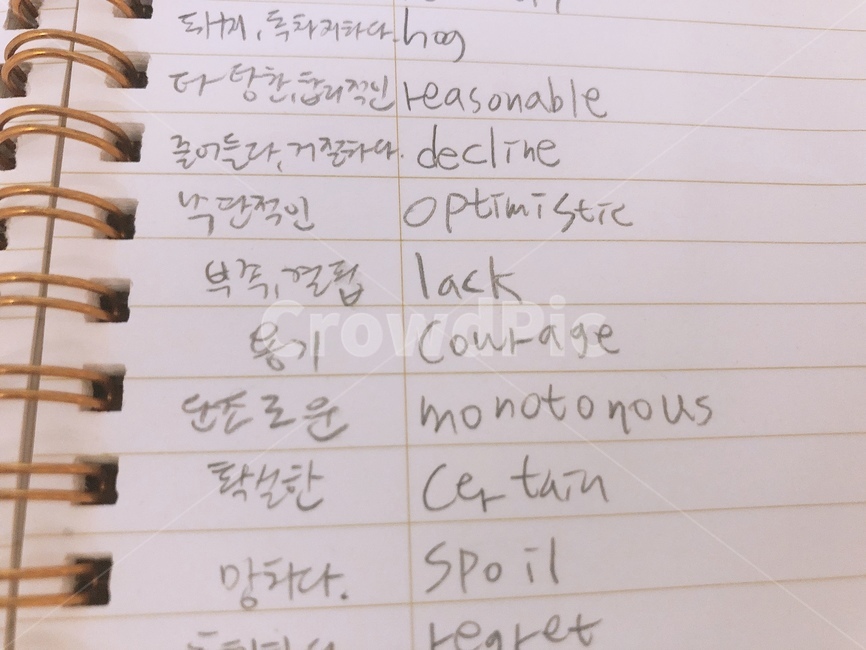 돼지, 독차지하다. hog
타당한, 합리적인 reasonable
줄어들다, 거절하다. decline
낙관적인 optimistic
부족, 결핍 lack
용기 courage
단조로운 monotonous
확실한 certain
망치다. spoil
regret
CrowdPic